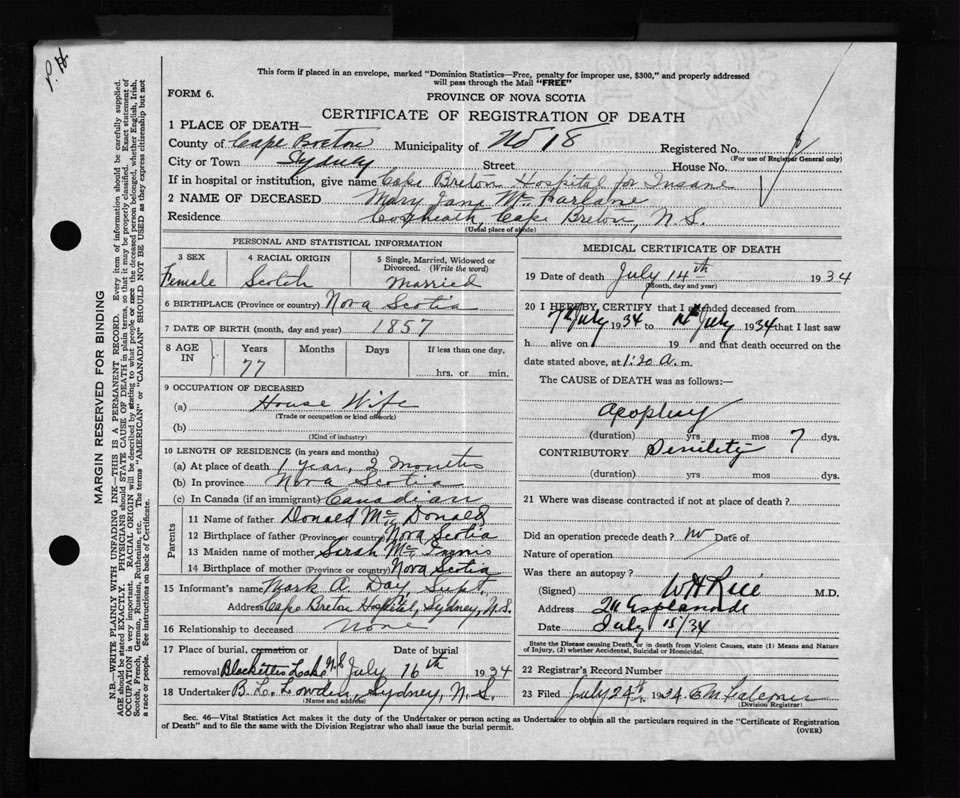 P.H.
This form if placed in an envelope, marked "Dominion Statistics—Free, penalty for improper use, $300," and properly addressed
will pass through the Mail "FREE"
FORM 6.
PROVINCE OF NOVA SCOTIA
CERTIFICATE OF REGISTRATION OF DEATH
1 PLACE OF DEATH—
County of Cape Breton Municipality of No 18 Registered No.
(For use of Registrar General only)
City or Town Sydney Street House No.
If in hospital or institution, give name Cape Breton Hospital for Insane
2 NAME OF DECEASED Mary Jane McFarlane
Residence Coxheath, Cape Breton, N.S.
(Usual place of abode)
PERSONAL AND STATISTICAL INFORMATION
3 SEX 4 RACIAL ORIGIN 5 Single, Married, Widowed or Divorced. (Write the word)
Female Scotch Married
6 BIRTHPLACE (Province or country) Nova Scotia
7 DATE OF BIRTH (month, day and year) 1857
8 AGE IN Years Months Days If less than one day,
77 hrs. or min.
9 OCCUPATION OF DECEASED
(a) House Wife
(Trade or occupation or kind of work)
(b)
(Kind of industry)
10 LENGTH OF RESIDENCE (in years and months)
(a) At place of death 1 Year, 2 Months
(b) In province Nova Scotia
(c) In Canada (if an immigrant) Canadian
Parents
11 Name of father Donald McDonald
12 Birthplace of father (Province or country) Nova Scotia
13 Maiden name of mother Sarah Mc
14 Birthplace of mother (Province or country) Nova Scotia
15 Informant's name Mark A. Day, Supt.
Address Cape Breton Hospital, Sydney, N.S.
16 Relationship to deceased None
17 Place of burial, cremation or removal Blacketts Lake N.S Date of burial July 16th 1934
18 Undertaker B. L. Lowden, Sydney, N.S.
(Name and address)
MEDICAL CERTIFICATE OF DEATH
19 Date of death July 14th 1934
(Month, day and year)
20 I HEREBY CERTIFY that I attended deceased from
7 July 1934 to 14 July 1934 that I last saw
h alive on 19 and that death occurred on the
date stated above, at 1:20 A. m.
The CAUSE of DEATH was as follows:—
Apoplexy
(duration) yrs mos 7 dys.
CONTRIBUTORY Senility
(duration) yrs. mos dys.
21 Where was disease contracted if not at place of death?
Did an operation precede death? no Date of
Nature of operation
Was there an autopsy?
(Signed) W H Rice M.D.
Address Esplanade
Date July 15/34
State the Disease causing Death, or in death from Violent Causes, state (1) Means and Nature of Injury, (2) whether Accidental, Suicidal or Homicidal.
22 Registrar's Record Number
23 Filed July 24th 1934
(Division Registrar)
Sec. 46—Vital Statistics Act makes it the duty of the Undertaker or person acting as Undertaker to obtain all the particulars required in the "Certificate of Registration
of Death" and to file the same with the Division Registrar who shall issue the burial permit.
(OVER)
MARGIN RESERVED FOR BINDING
N.B.—WRITE PLAINLY WITH UNFADING INK—THIS IS A PERMANENT RECORD. Every item of information should be carefully supplied.
AGE should be stated EXACTLY. PHYSICIANS should STATE CAUSE OF DEATH in plain terms, so that it may be properly classified. Exact statement of
OCCUPATION is very important. RACIAL ORIGIN will be described by stating to what people or race the deceased person belonged, whether English, Irish,
Scotch, French, German, Russian, Ruthenian, etc. The terms "AMERICAN" or "CANADIAN" SHOULD NOT BE USED as they express citizenship but not
a race or people. See instructions on back of Certificate.